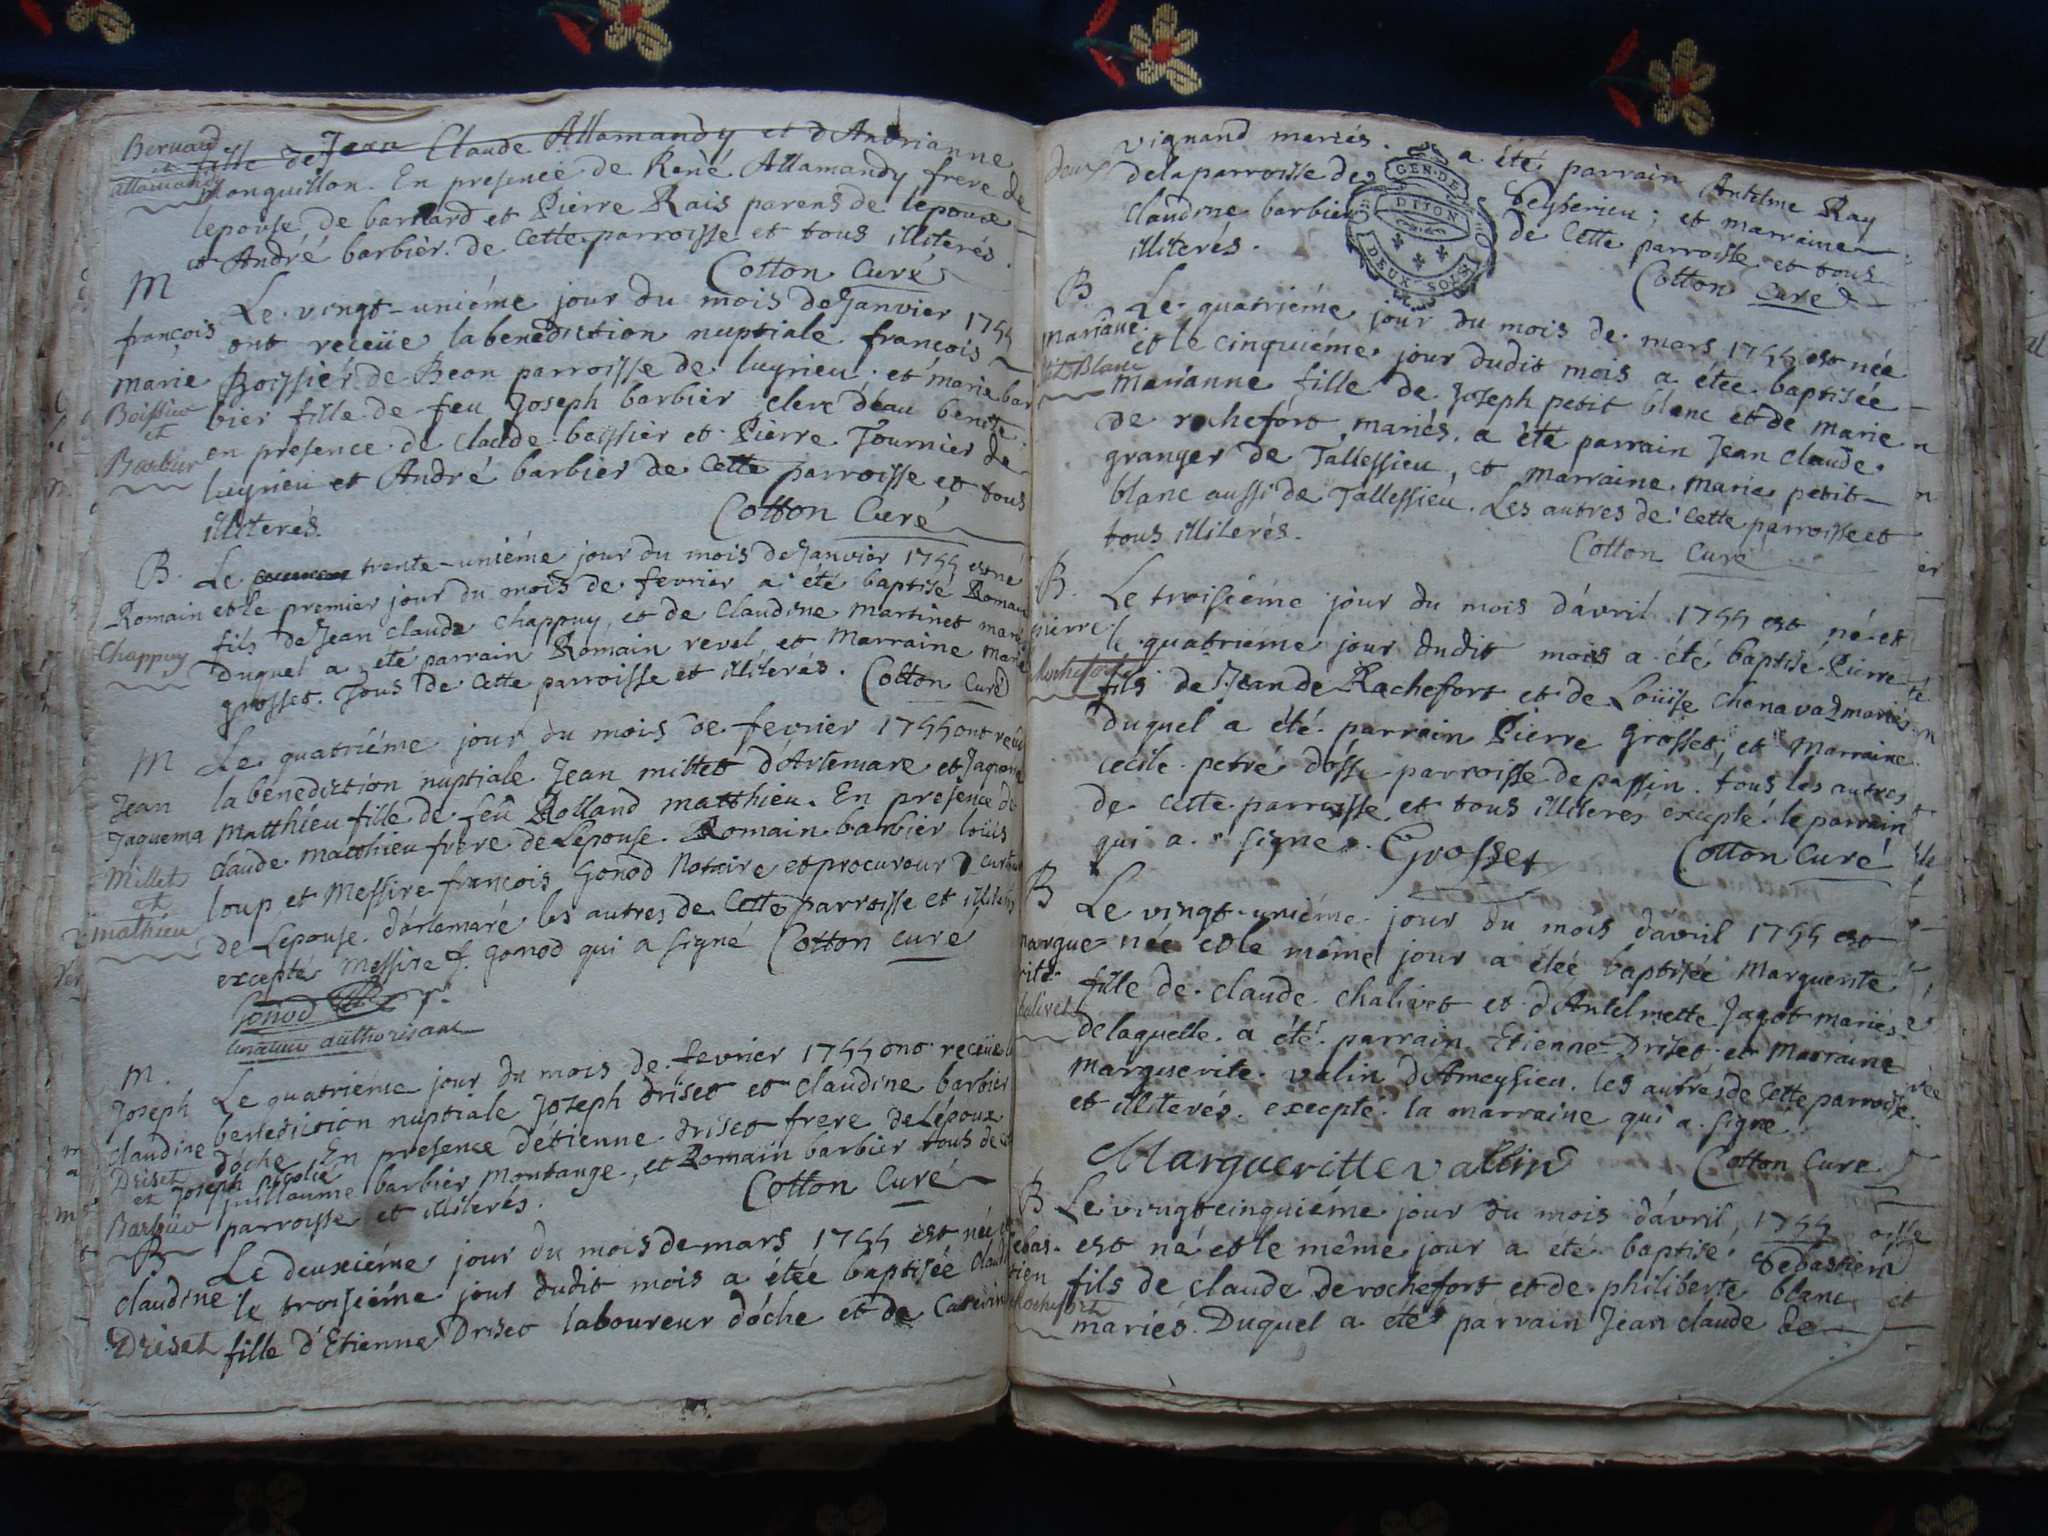 Bernard
et
allamand
fille de Jean Claude Allamandy et d'Andrianne
Monguillon. En presence de René Allamandy frere de
lepouse de barnard et Pierre Rais parens de lepoux
et André barbier de cette parroisse et tous illiterés.
Cotton Curé
M
françois
marie
Boissier
et
Barbier
Le vingt-uniéme jour du mois de Janvier 1755
ont receüe la benediction nuptiale françois
Boissier de Beon parroisse de luyrieu et marie bar
bier fille de feu Joseph barbier clerc d'eau benite.
en presence de claude boissier et Pierre Fournier de
luyrieu et André barbier de cette parroisse et tous
illiterés.
Cotton Curé
B.
Romain
Chappuy
Le trente-uniéme jour du mois de Janvier 1755 est né
et le premier jour du mois de fevrier a été baptisé Romain
fils de Jean claude chappuy, et de Claudine martinet mariés
duquel a été parrain Romain revel et Marraine marie
grosset. Tous de cette parroisse et illiterés. Cotton Curé
M
Jean
Jaquema
Millet
et
mathieu
Le quatriéme jour du mois de fevrier 1755 ont reçu
la benediction nuptiale Jean millet d'Artemare et Jaquema
matthieu fille de feu Rolland matthieu. En presence de
claude matthieu frere de Lepouse. Romain barbier loüis
loup et Messire françois Gonod Notaire et procureur curateur
de Lepouse. d'artemare les autres de cette parroisse et illiterés
excepté Messire f. gonod qui a signé Cotton curé
Gonod
curateur authorisant
M.
Joseph
claudine
Driset
et
Barbier
Le quatriéme jour du mois de fevrier 1755 ont receüe la
benediction nuptiale Joseph driset et claudine barbier
d'óche En presence d'étienne driset frere de Lépoux
Joseph
guillaume barbier montange, et Romain barbier tous de cette
parroisse et illiterés.
Cotton Curé
B
claudine
Driset
Le deuxiéme jour du mois de mars 1755 est née et
le troisiéme jour dudit mois a étée baptisée claudine
fille d'Etienne Driset laboureur d'óche et de Caterine
vignand mariés. a été parrain Antelme Ray
de la parroisse de Ceyserieu; et marraine
claudine barbier de cette parroisse et tous
illiterés.
Cotton Curé
GEN. DE
DIJON
DEUX SOLS
B.
marianne
petit Blanc
Le quatriéme jour du mois de mars 1755 est née
et le cinquiéme jour dudit mois a étée baptisée
marianne fille de Joseph petit blanc et de marie
de rochefort mariés. a été parrain Jean claude
granger de Tallessieu, et marraine marie petit
blanc aussi de Tallessieu. Les autres de cette parroisse et
tous illiterés.
Cotton Curé
B.
pierre
Rochefort
Le troisiéme jour du mois d'avril 1755 est né et
le quatriéme jour dudit mois a été baptisé Pierre
fils de Jean de Rochefort et de Loüise chenavaz mariés
duquel a été parrain Pierre grosset, et Marraine
cecile petré d'osse parroisse de passin. tous les autres
de cette parroisse et tous illiterés excepté le parrain
qui a signé. Grosset
Cotton Curé
B
margue
rite
chalivet
Le vingt-uniéme jour du mois d'avril 1755 est
née et le même jour a étée baptisée Marguerite
fille de claude chalivet et d'Antelmette Jagot mariés
de laquelle a été parrain Etienne Driset et marraine
marguerite valin d'Ameysieu. les autres de cette parroisse
et illiterés. excepté la marraine qui a signé.
Margueritte vallin
Cotton Curé
B
Sebas-
tien
Rochefort
Le vingt cinquiéme jour du mois d'avril 1755
est né et le même jour a été baptisé Sebastien
fils de claude de rochefort et de philiberte blanc
mariés. Duquel a été parrain Jean claude de